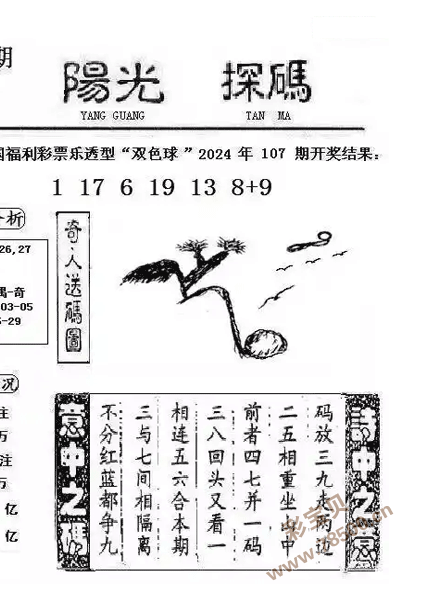 期
陽光 探碼
YANG GUANG TAN MA
国福利彩票乐透型“双色球”2024 年 107 期开奖结果:
1 17 6 19 13 8+9
析
26,27
-奇
03-05
-29
况
注
万
注
万
亿
亿
奇·人送碼圖
詩中之意
码放三九走两边
二五相重坐当中
前者四七并一码
三八回头又看一
相连五六合本期
三与七间相隔离
不分红蓝都争九
意中之碼
彩宝贝